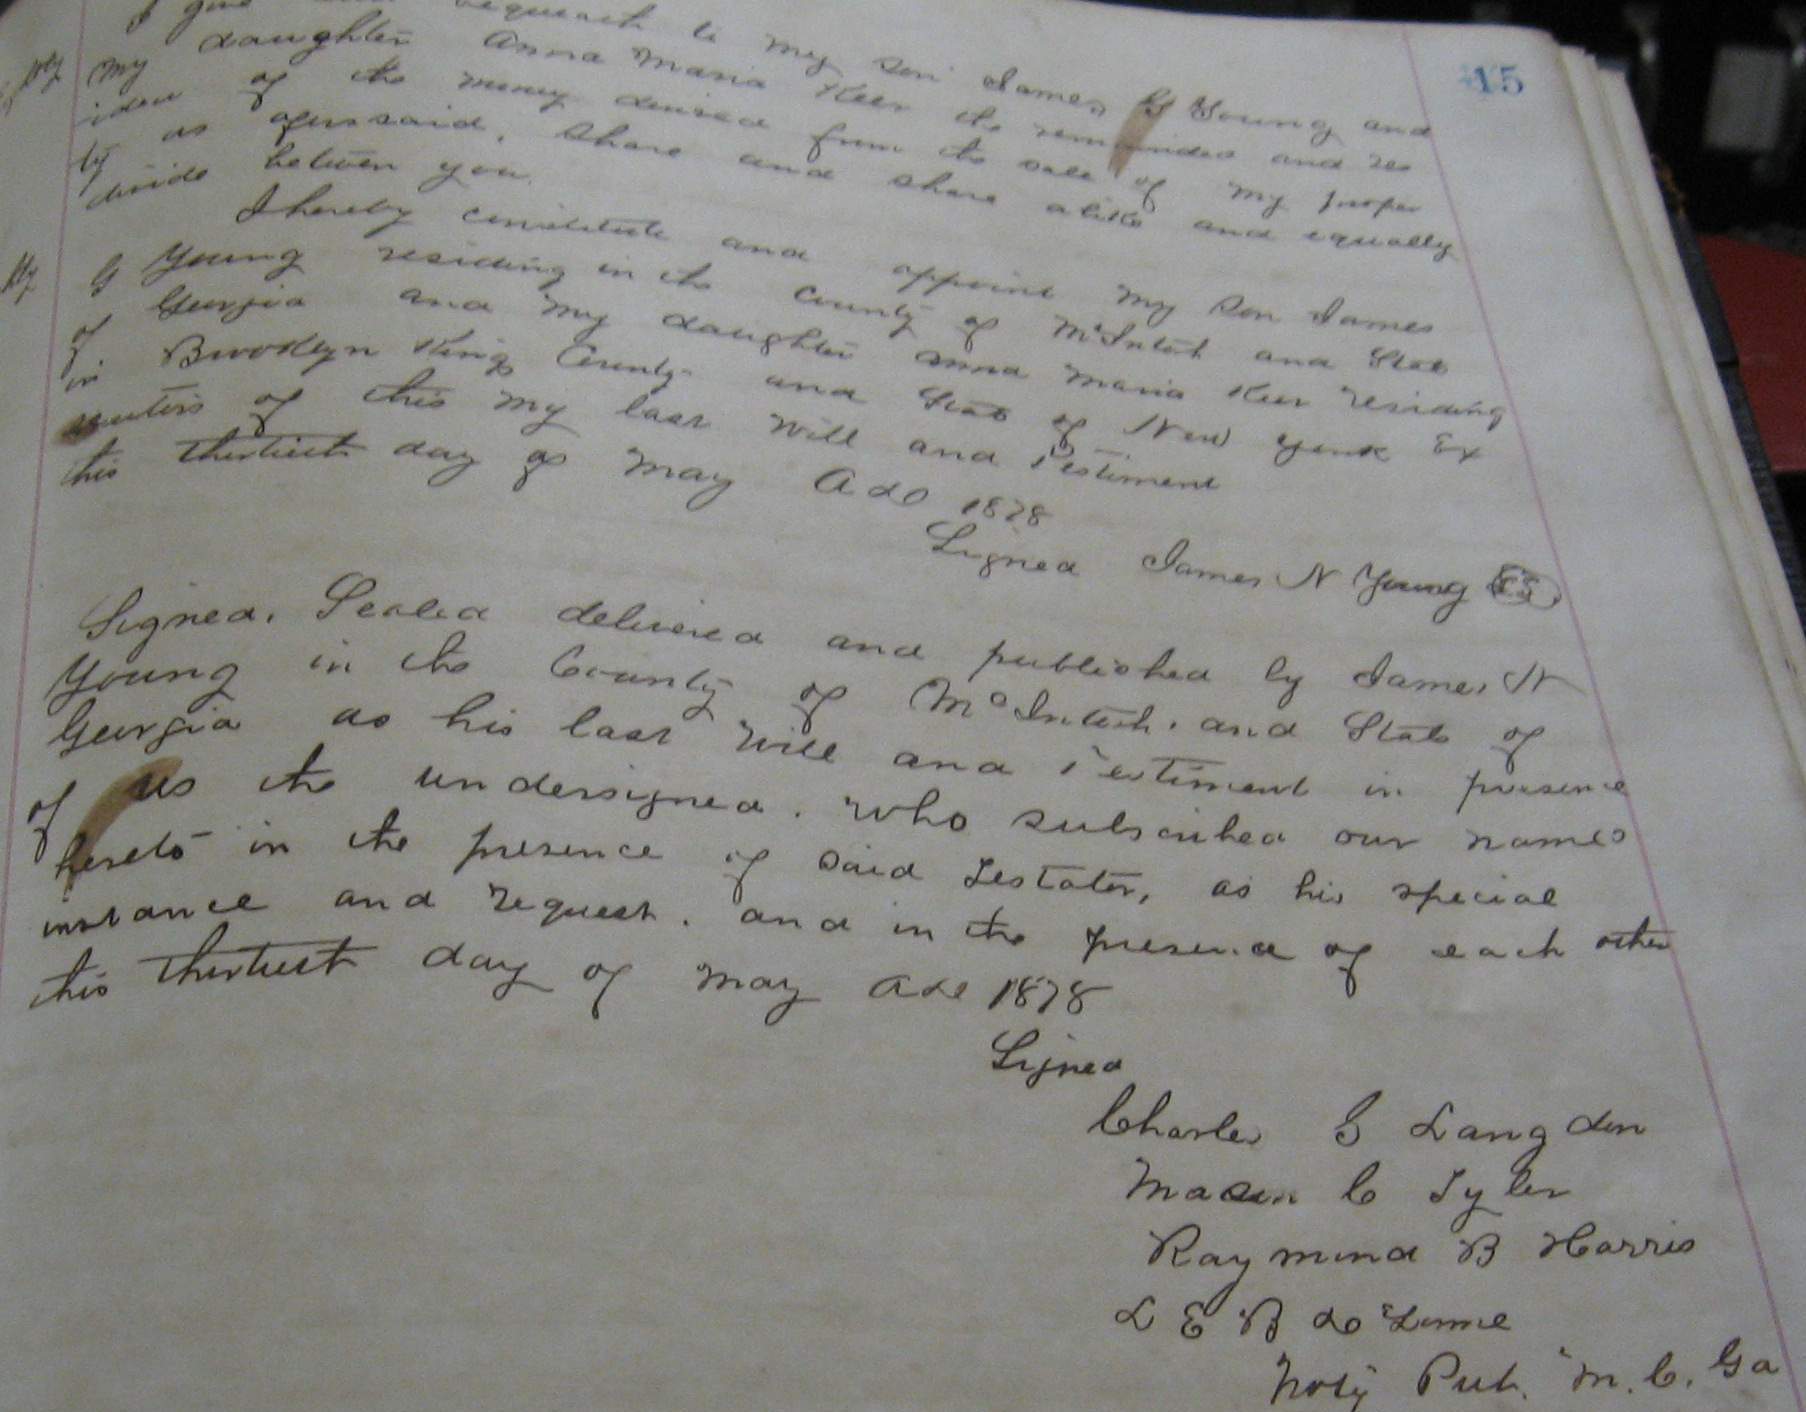 15
I give and bequeath to my son James G Young and
my daughter Anna Maria Keer the remainder and res
idue of the money derived from the sale of my proper
ty as aforesaid, share and share alike and equally
divide between you.
I hereby constitute and appoint my son James
G Young residing in the County of McIntosh and State
of Georgia and my daughter Anna Maria Keer residing
in Brooklyn Kings County and State of New York Ex
ecutors of this my last will and Testiment
this thirtieth day of May A D 1878
Signed James N Young LS
Signed, Sealed delivered and published by James N
Young in the County of McIntosh, and State of
Georgia as his last will and Testiment in presence
of us the undersigned, who subscribed our names
hereto in the presence of said Testator, as his special
instance and request, and in the presence of each other
this thirtieth day of May A D 1878
Signed
Charles G Langdon
Mason C Tyler
Raymond B Harris
L E B
Noty Pub. M. C. Ga